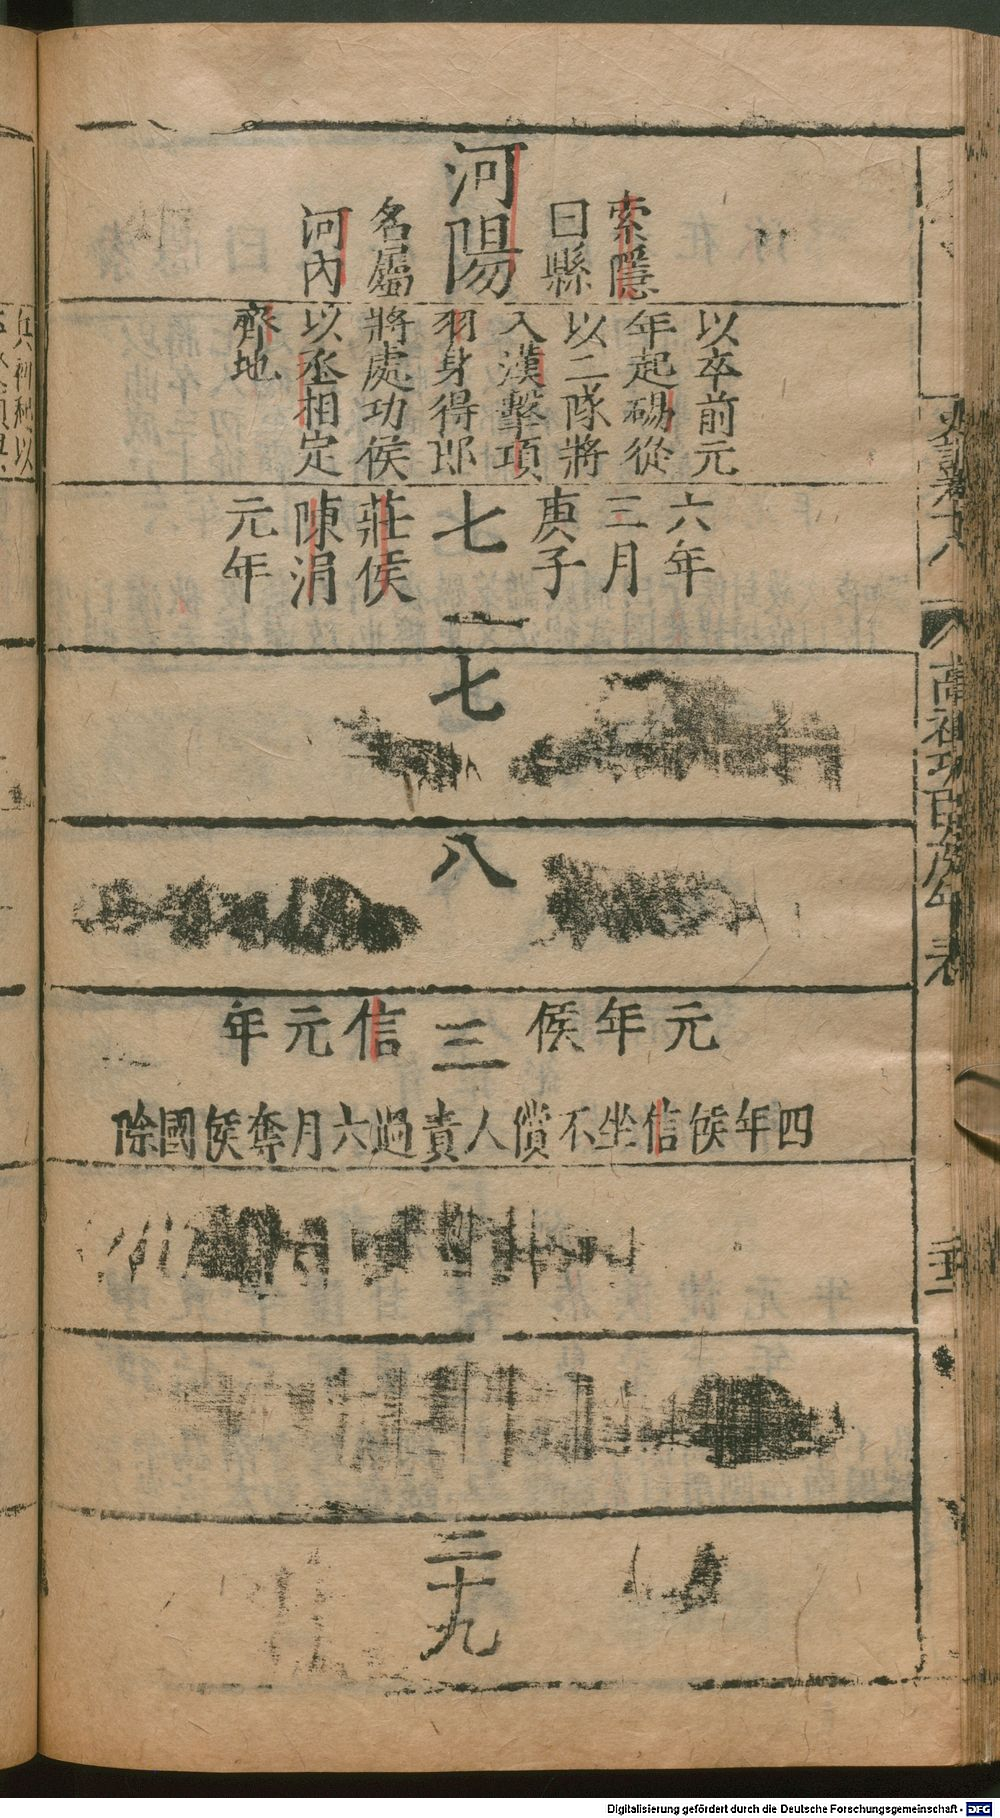 河陽
索隱
曰縣
名屬
河内
以卒前元
年起碭從
以二隊將
入漢擊項
羽身得郎
將處功侯
以丞相定
齊地
六年
三月
庚子
七
莊侯
陳涓
元年
一
七
八
元年侯
三
信元年
四年侯信坐不償人責過六月奪侯國除
二十九
高祖功臣侯年表
Digitalisierung gefördert durch die Deutsche Forschungsgemeinschaft - DFG